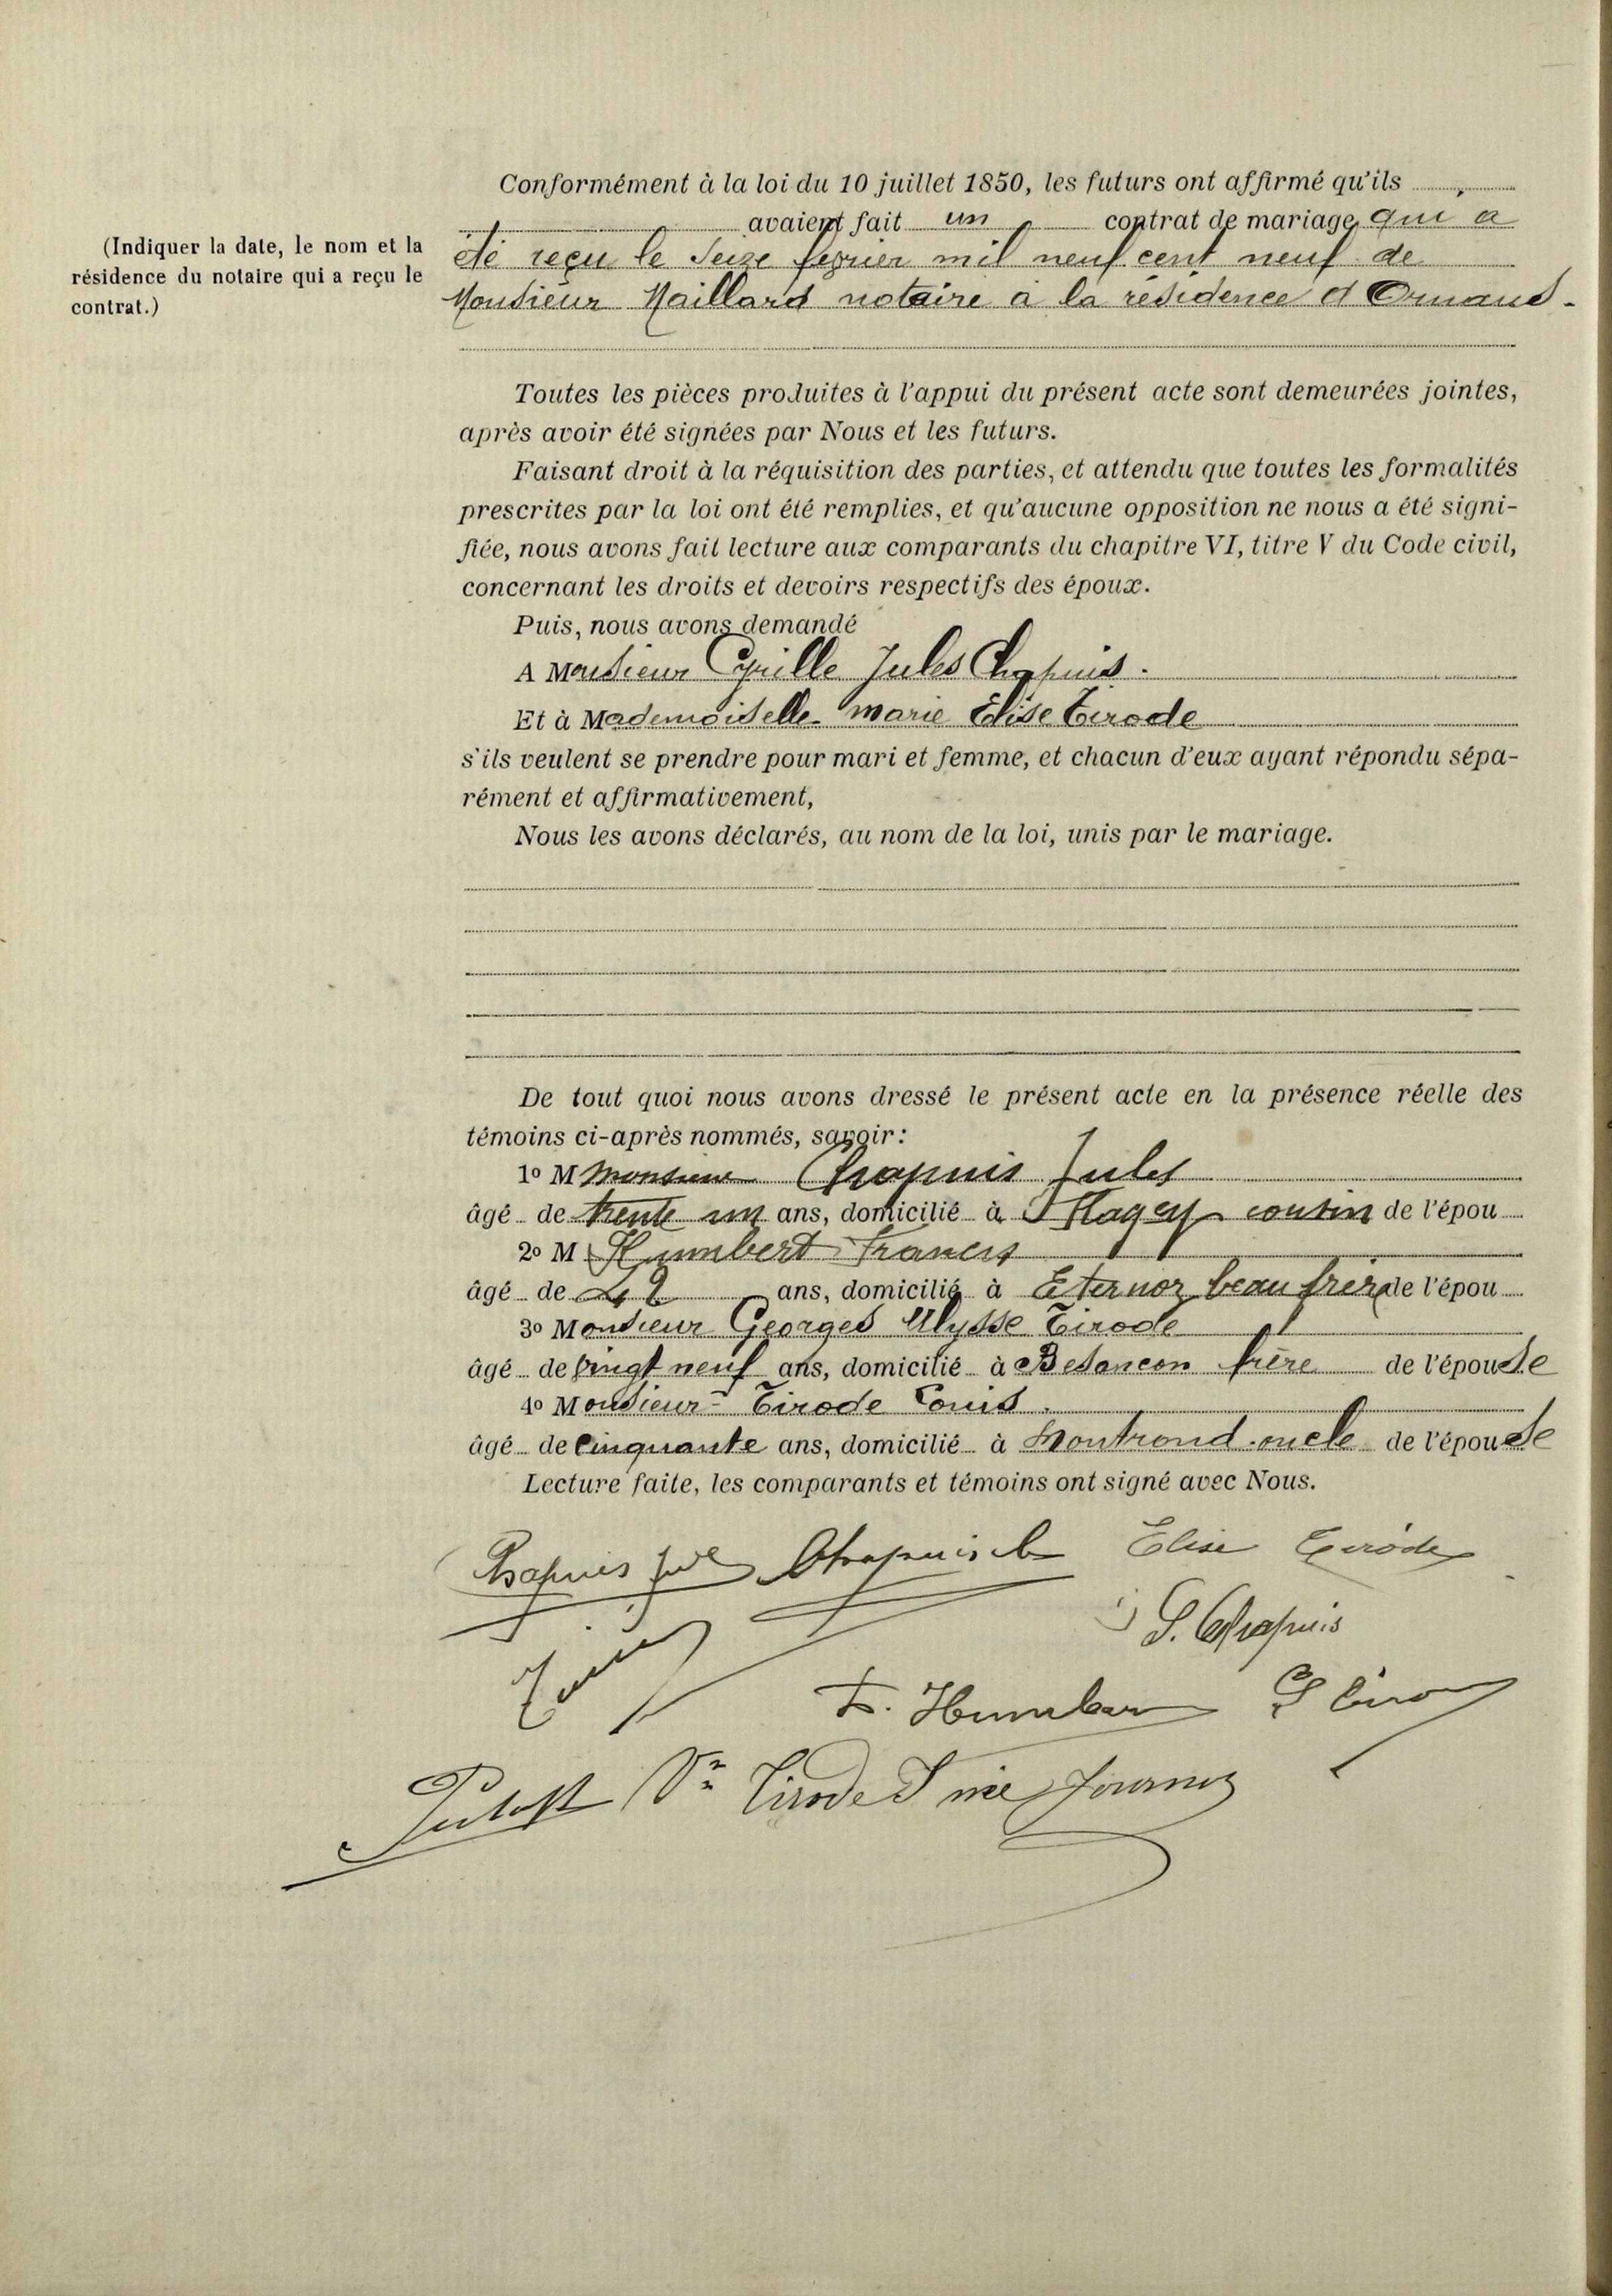 Conformément à la loi du 10 juillet 1850, les futurs ont affirmé qu'ils
avaient fait un contrat de mariage qui a
(Indiquer la date, le nom et la
résidence du notaire qui a reçu le
contrat.)
été reçu le Seize février mil neuf cent neuf de
Monsieur Maillard notaire à la résidence d'Ornans.
Toutes les pièces produites à l'appui du présent acte sont demeurées jointes,
après avoir été signées par Nous et les futurs.
Faisant droit à la réquisition des parties, et attendu que toutes les formalités
prescrites par la loi ont été remplies, et qu'aucune opposition ne nous a été signi-
fiée, nous avons fait lecture aux comparants du chapitre VI, titre V du Code civil,
concernant les droits et devoirs respectifs des époux.
Puis, nous avons demandé
A Monsieur Cyrille Jules Chapuis.
Et à Mademoiselle Marie Elise Tirode
s'ils veulent se prendre pour mari et femme, et chacun d'eux ayant répondu sépa-
rément et affirmativement,
Nous les avons déclarés, au nom de la loi, unis par le mariage.
De tout quoi nous avons dressé le présent acte en la présence réelle des
témoins ci-après nommés, savoir:
1o M Monsieur Chapuis Jules
âgé de trente un ans, domicilié à Flagey cousin de l'épou
2o M Humbert Francis
âgé de 42 ans, domicilié à Eternoz beau frère de l'épou
3o Monsieur Georges Ulysse Tirode
âgé de vingt neuf ans, domicilié à Besançon frère de l'épouse
4o Monsieur Tirode Louis.
âgé de Cinquante ans, domicilié à Montrond oncle de l'épouse
Lecture faite, les comparants et témoins ont signé avec Nous.
Chapuis Jul Chapuis C Elise Tirode
Chapuis
F. Humber
Vve Tirode née Journoz